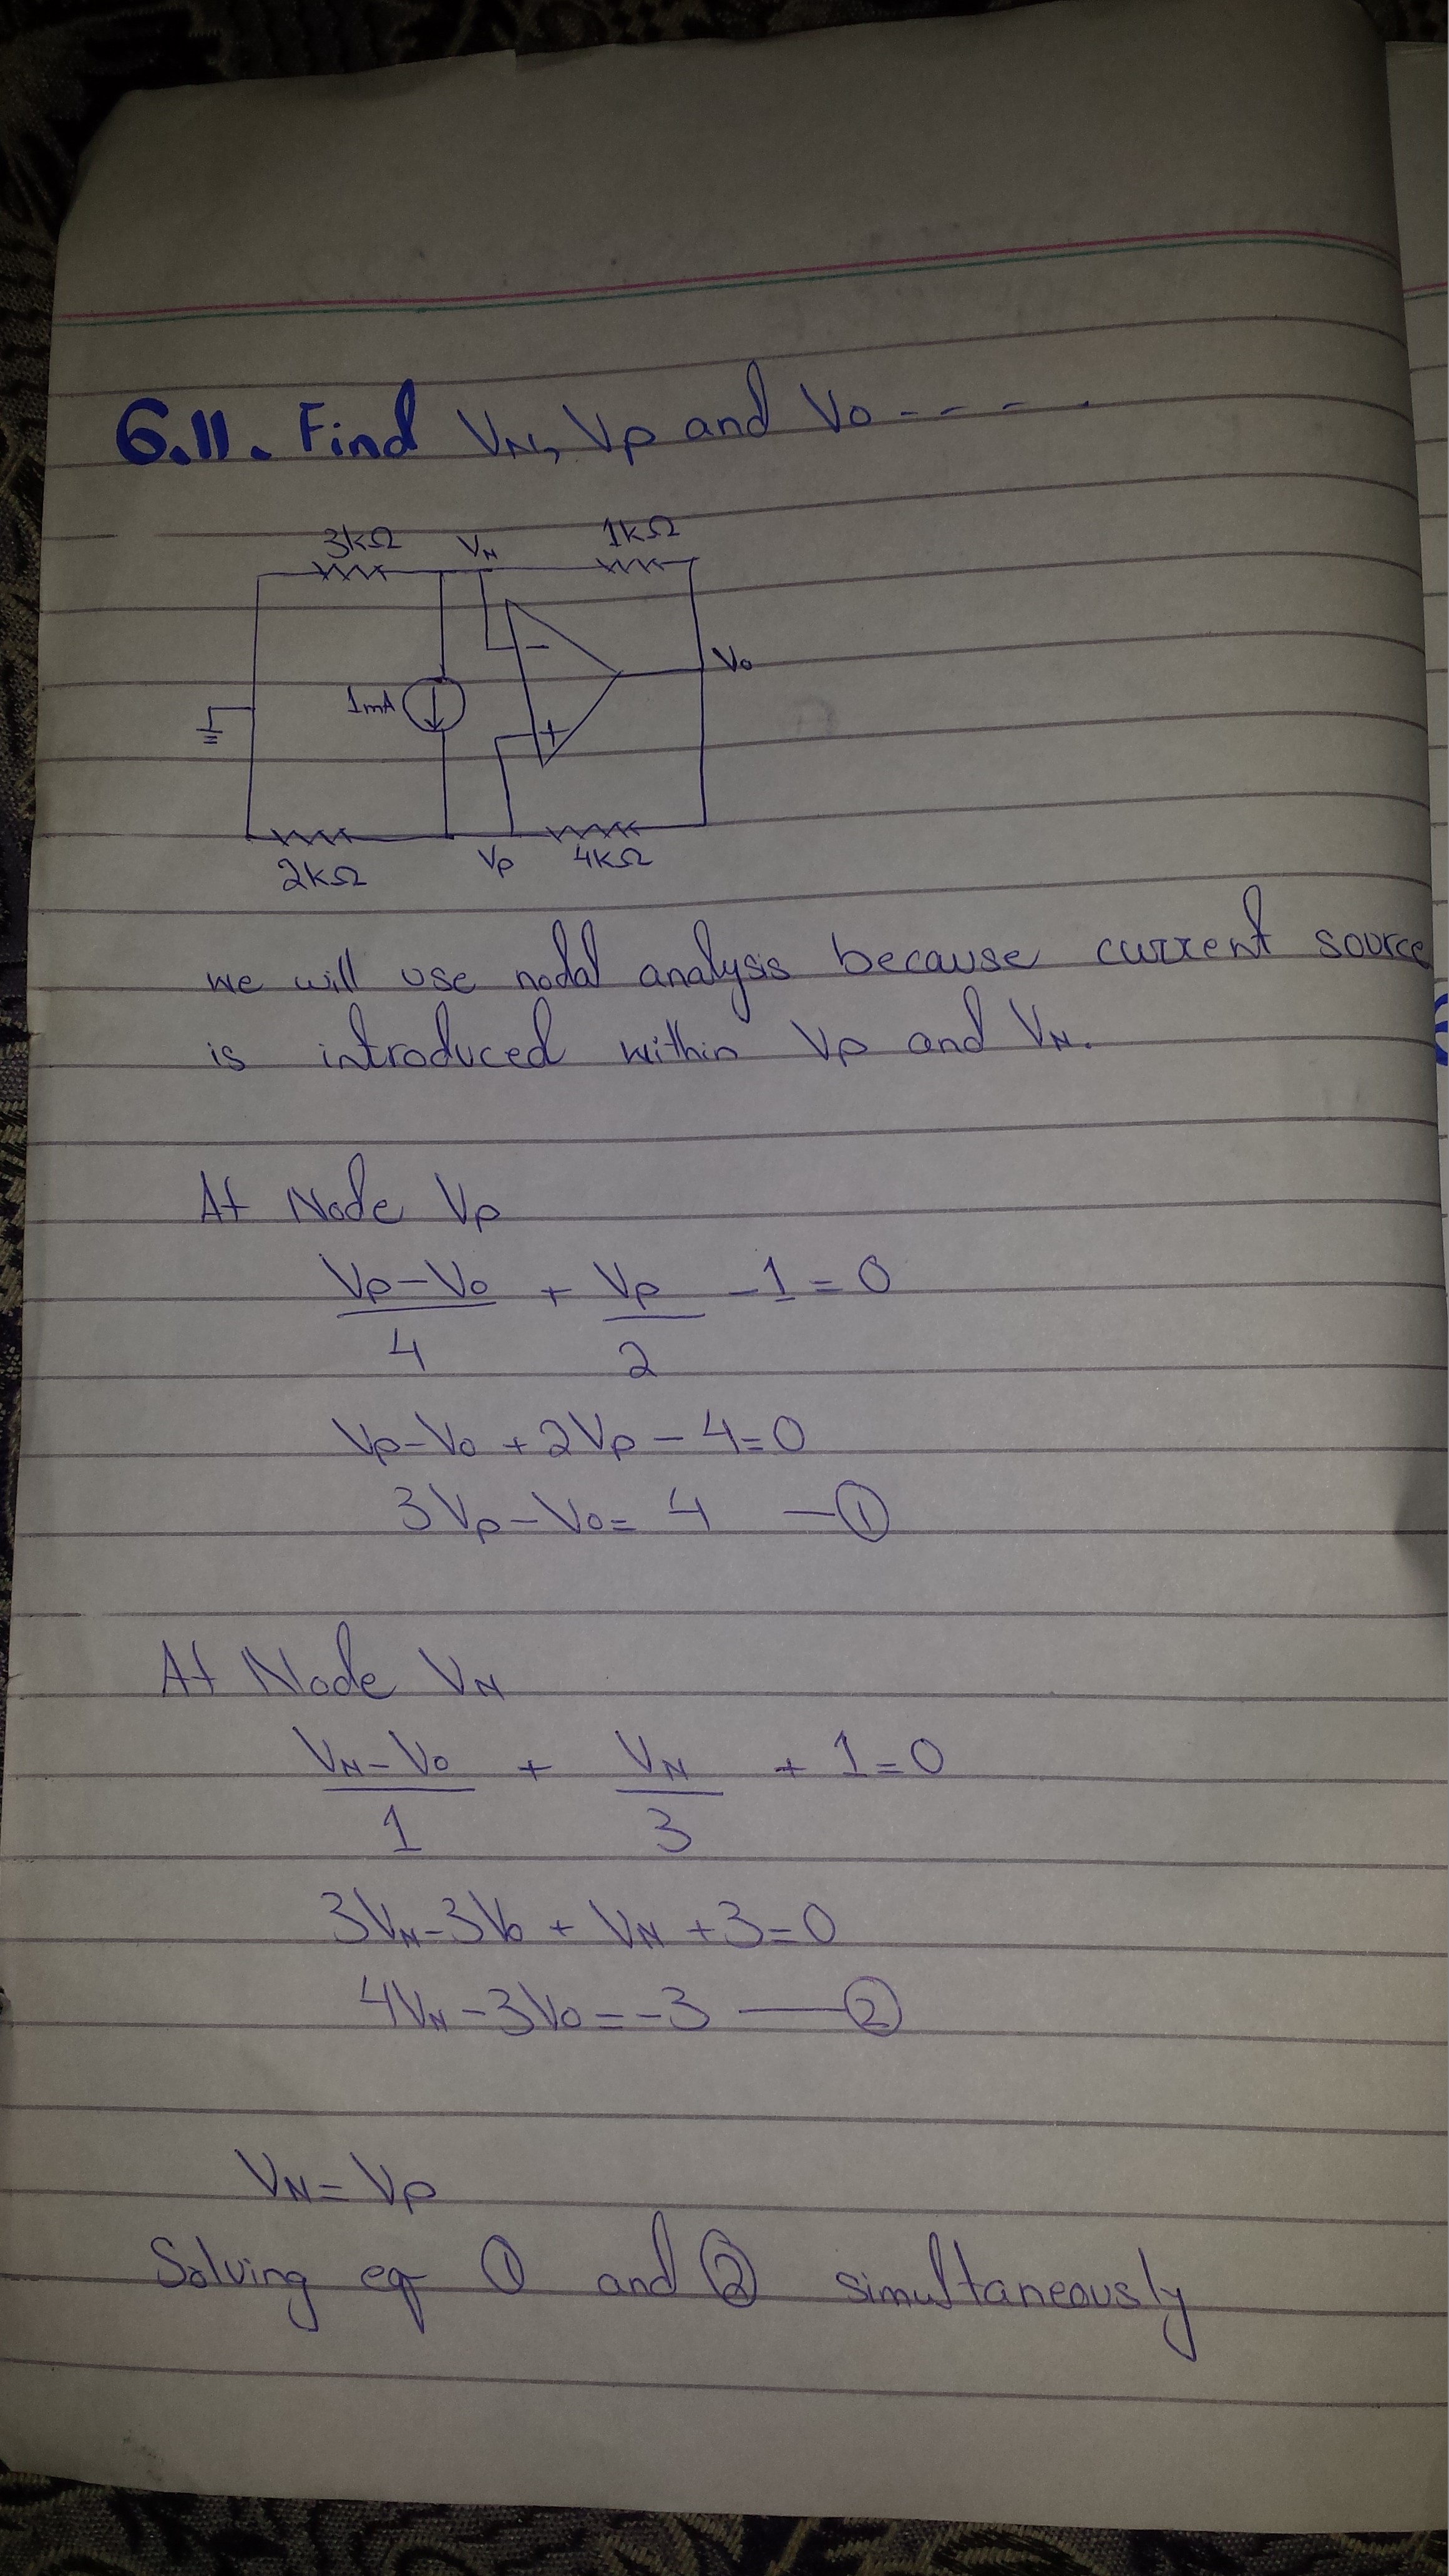 6.11. Find VN, Vp and Vo - - - -
3kΩ VN 1kΩ
−
Vo
1mA
+
2kΩ Vp 4kΩ
we will use nodal analysis because current source
is introduced within Vp and VN.
At Node Vp
Vp-Vo/4 + Vp/2 - 1 = 0
Vp-Vo + 2Vp - 4 = 0
3Vp-Vo = 4 — ①
At Node VN
VN-Vo/1 + VN/3 + 1 = 0
3VN-3Vo + VN + 3 = 0
4VN - 3Vo = -3 — ②
VN = Vp
Solving eq ① and ② simultaneously